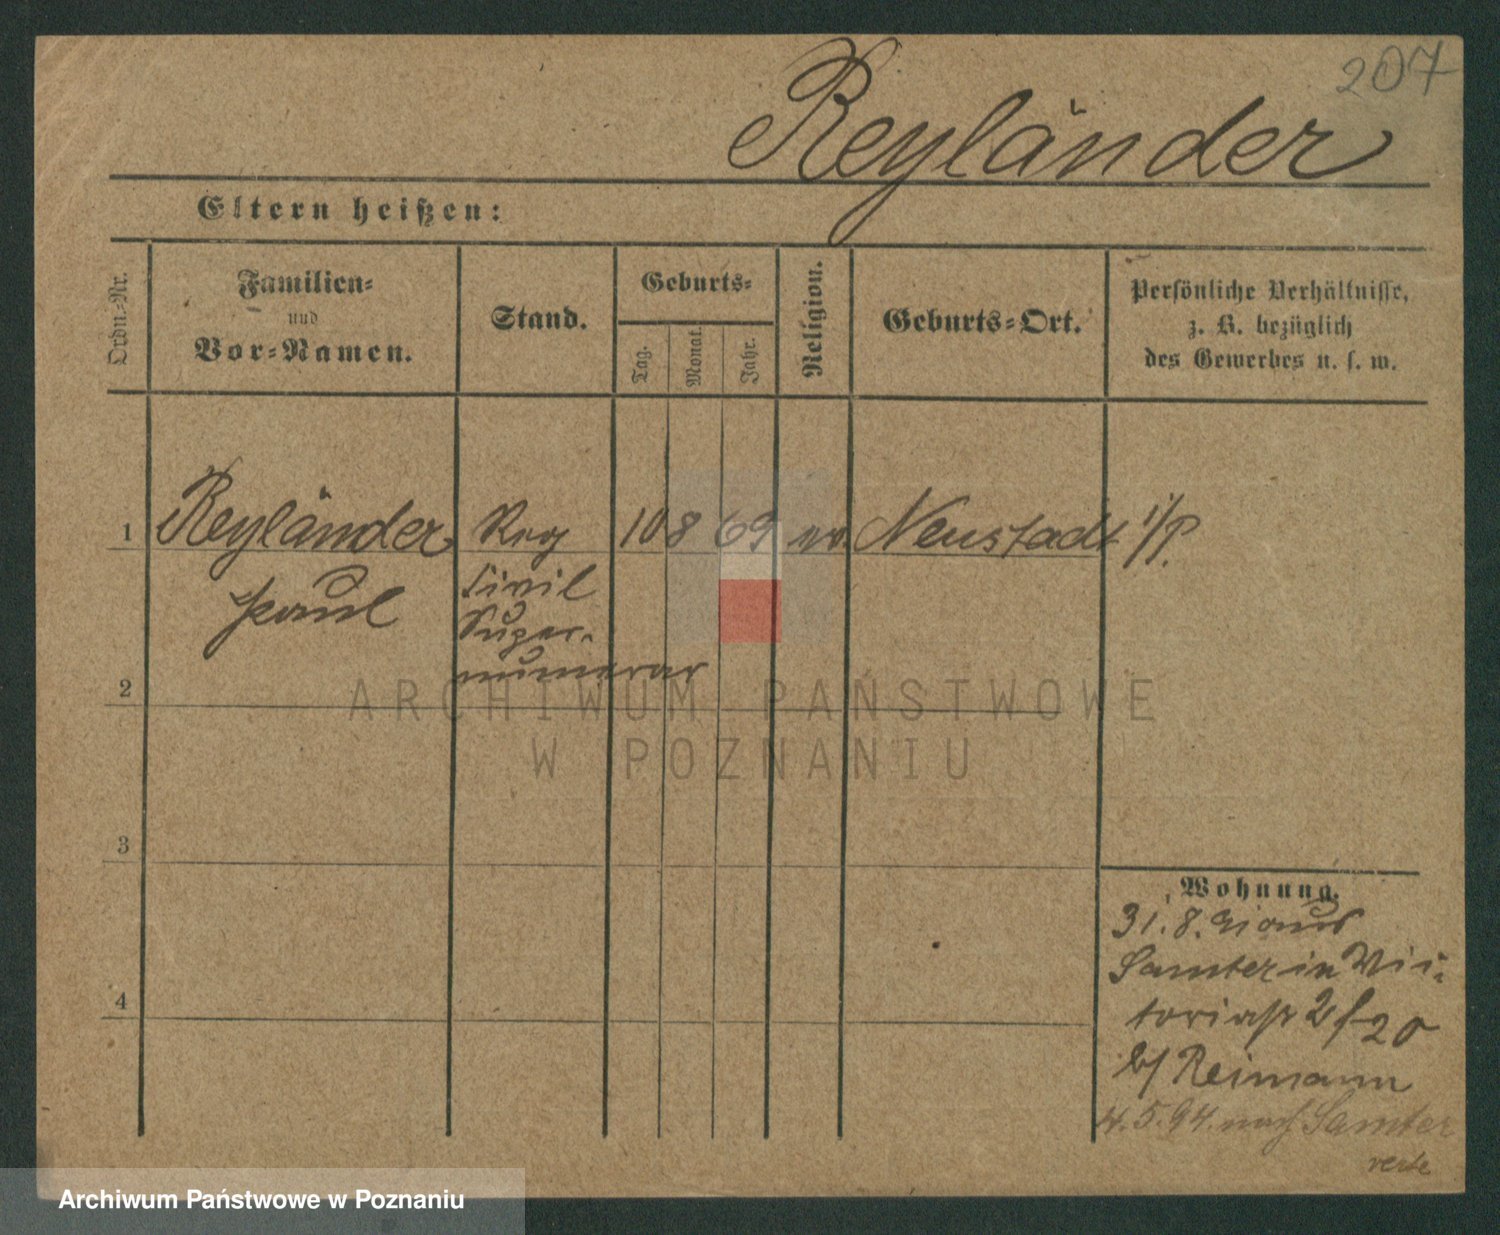 207
Reyländer
Eltern heißen:
Ordn.-Nr.
Familien-
und
Vor-Namen.
Stand.
Geburts-
Tag.
Monat.
Jahr.
Religion.
Geburts-Ort.
Persönliche Verhältnisse,
z. B. bezüglich
des Gewerbes u. s. w.
1 Reyländer Reg 10 8 69 ev. Neustadt i/P.
Paul Civil
Super-
numerar
2
ARCHIWUM PAŃSTWOWE
W POZNANIU
3
Wohnung.
31. 8. aus
Samter in Vic-
toriastr 20
b/ Reimann
4
4. 5. 94. nach Samter
Archiwum Państwowe w Poznaniu